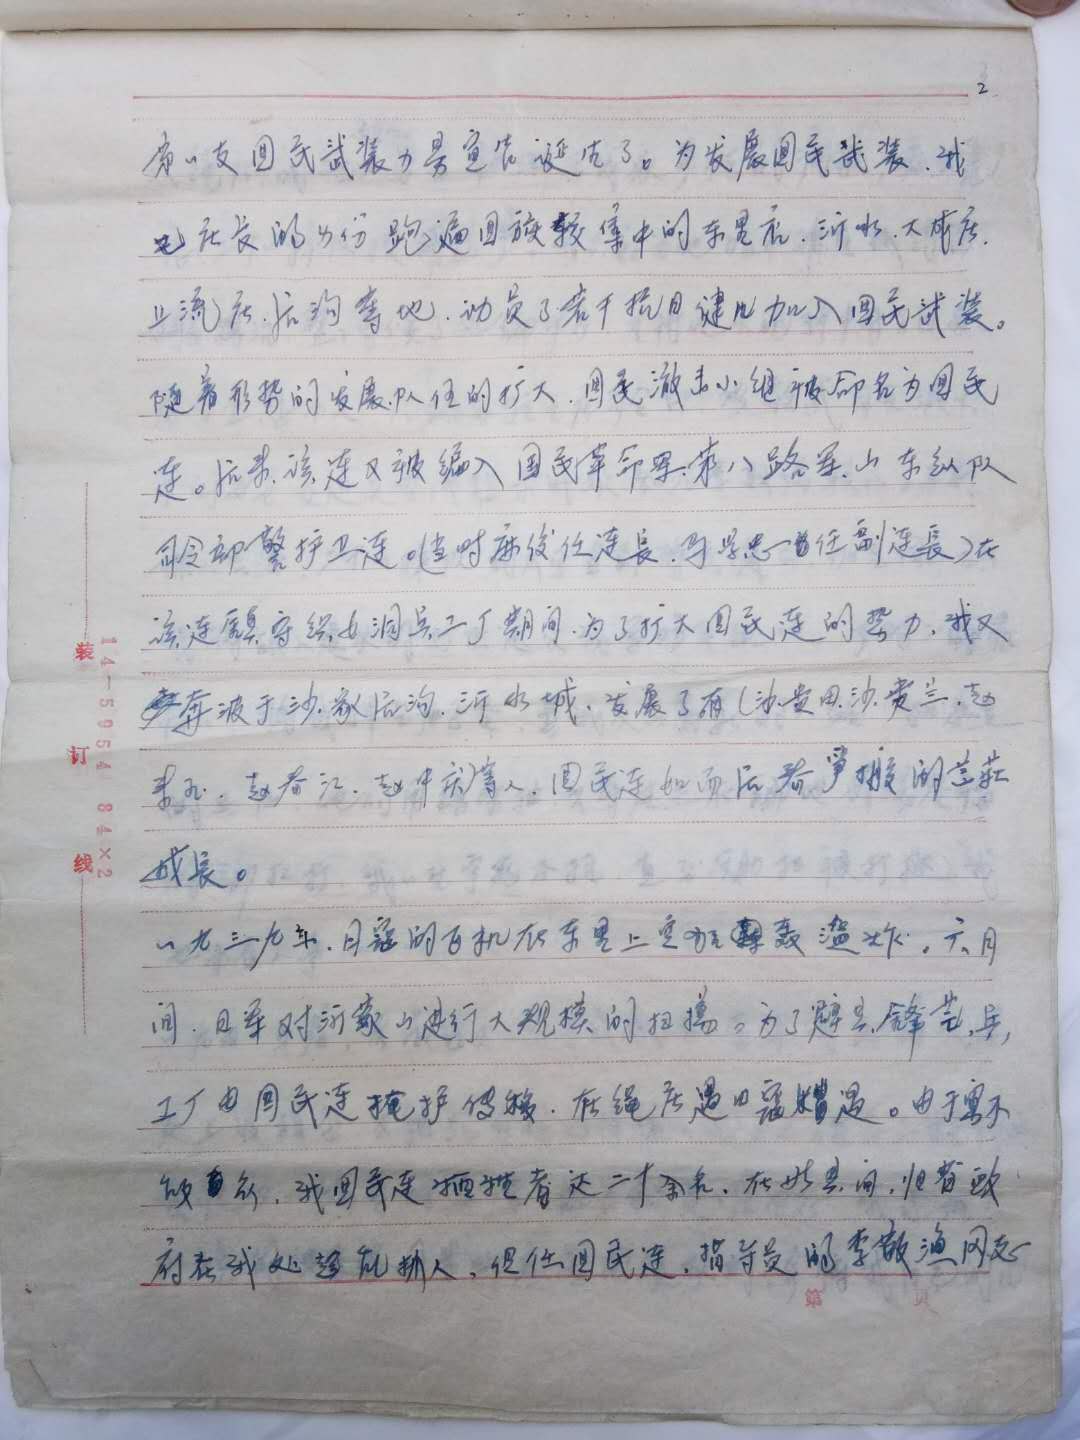 2
第一支回民武装力量宣告诞生了。为发展回民武装、我
以庄长的身份跑遍回族较集中的东里店、沂水、大成庄、
上流庄、后沟等地、动员了若干抗日健儿加入回民武装。
随着形势的发展、队伍的扩大、回民游击小组被命名为回民
连。后来、该连又被编入国民革命军、第八路军、山东纵队
司令部警护卫连。(当时麻俊任连长、马学忠任副连长)在
该连守织女洞兵工厂期间、为了扩大回民连的势力、我又
奔波于沙家后沟、沂水城、发展了有(沙贵田、沙贵兰、赵
赵春江、赵中庆)等人、回民连如雨后春笋般的茁壮
成长。
一九三九年、日寇的飞机在东里上空狂轰滥炸。六月
间、日军对沂蒙山进行大规模的扫荡。为了避其锋芒、兵
工厂由回民连掩护转移、在绳庄遇日寇遭遇。由于寡不
敌众、我回民连牺牲者达二十余名、在此其间、旧省政
府在我处趁乱抓人、但任回民连、指导员的李敬渔同志
装
订
线
14-5954 84×2
第 页